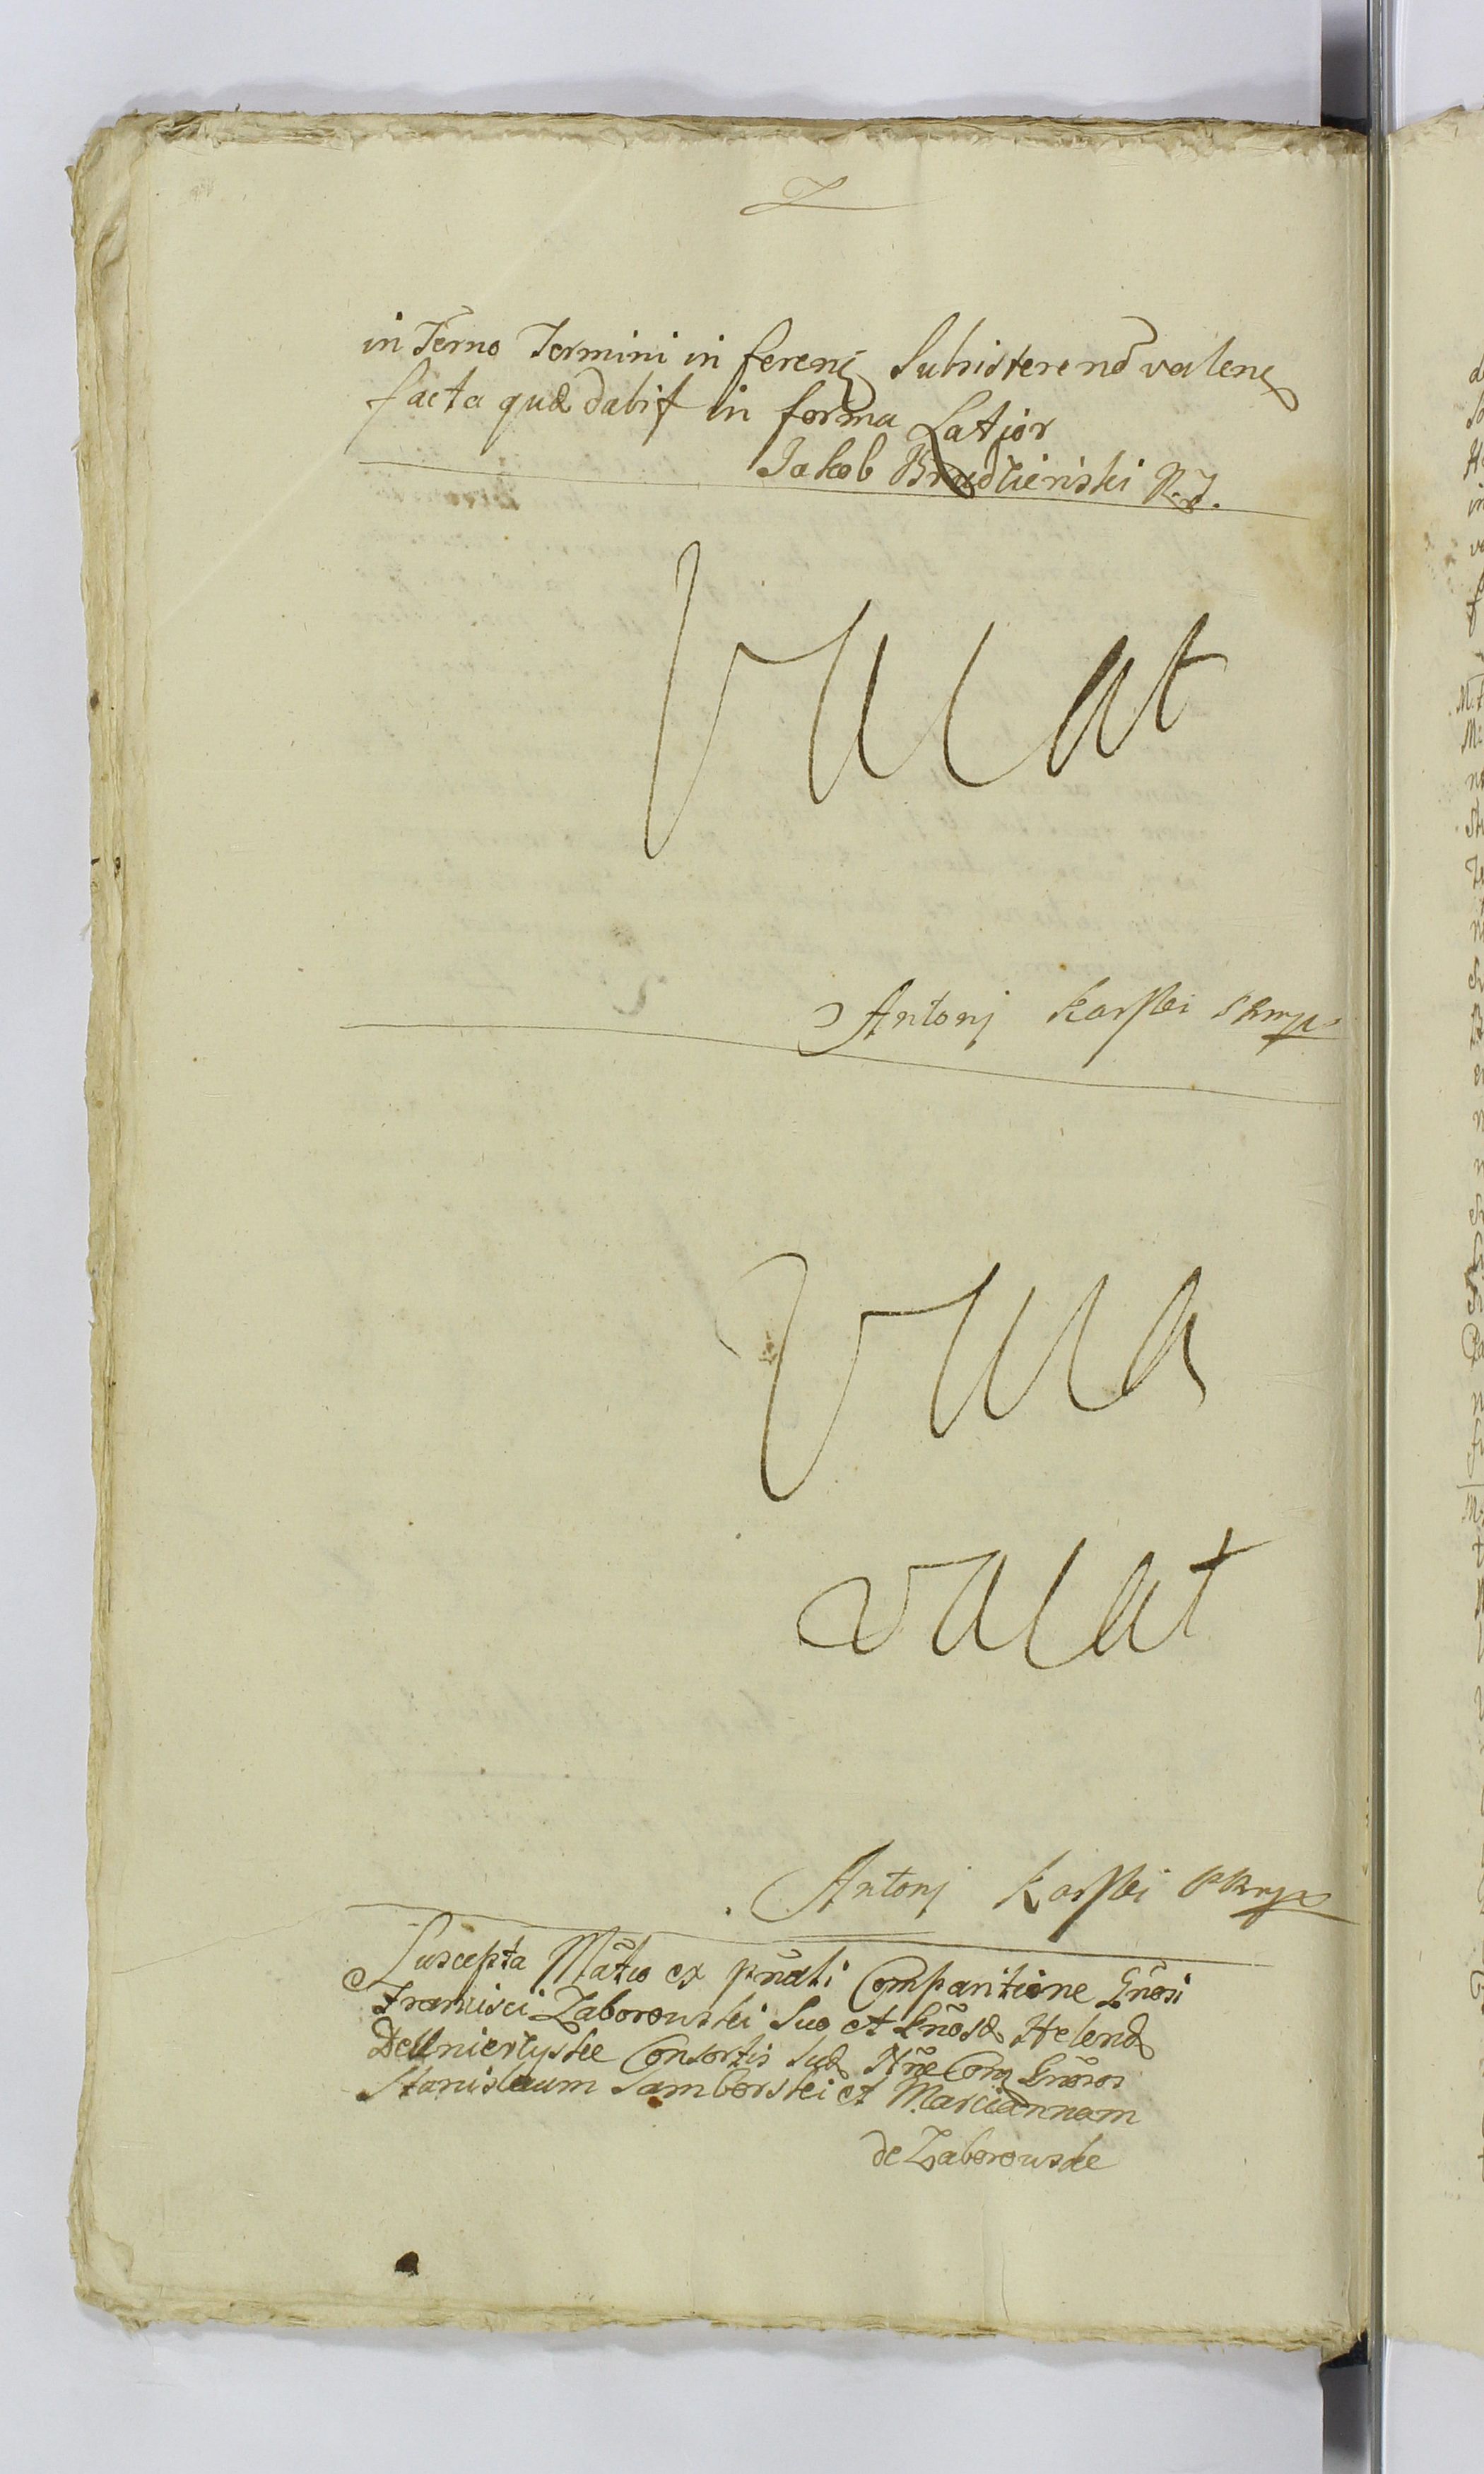 in Terno Termini in ferenȝ Subsisterenð valenȝ
facta quæ dabiſ in forma Latior
Jakob Brudzieński R.J.
Vacat
Antonj Karſki
Vaca
vacat
Antonj Karſki
Suscepta Mãtio ex pñali Comparitione Gñosi
Francisci Zaborowski Suo et Gñosæ Helenæ
De Consortis Suæ Nñe Corȝ Gñosos
Stanislaum Samborski et Mariannam
de Zaborowskie